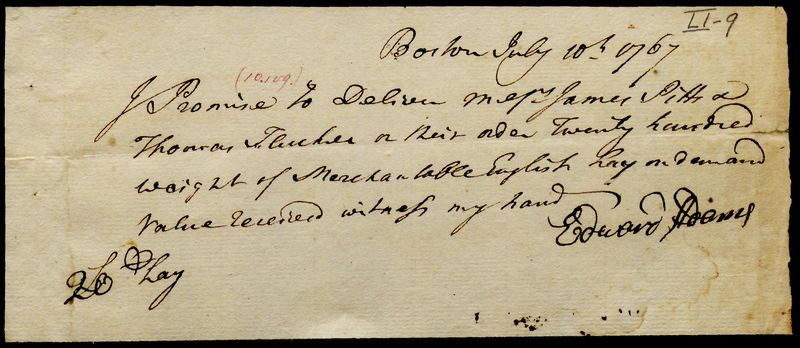 LI-9
Boston July 10th 1767
(10.109.)
I Promise to Deliver Messrs James Pitts &
Thomas Flucker or their order Twenty hundred
weight of Merchantable English Hay on demand
Value received witness my hand
Edward Adams
20 Hay